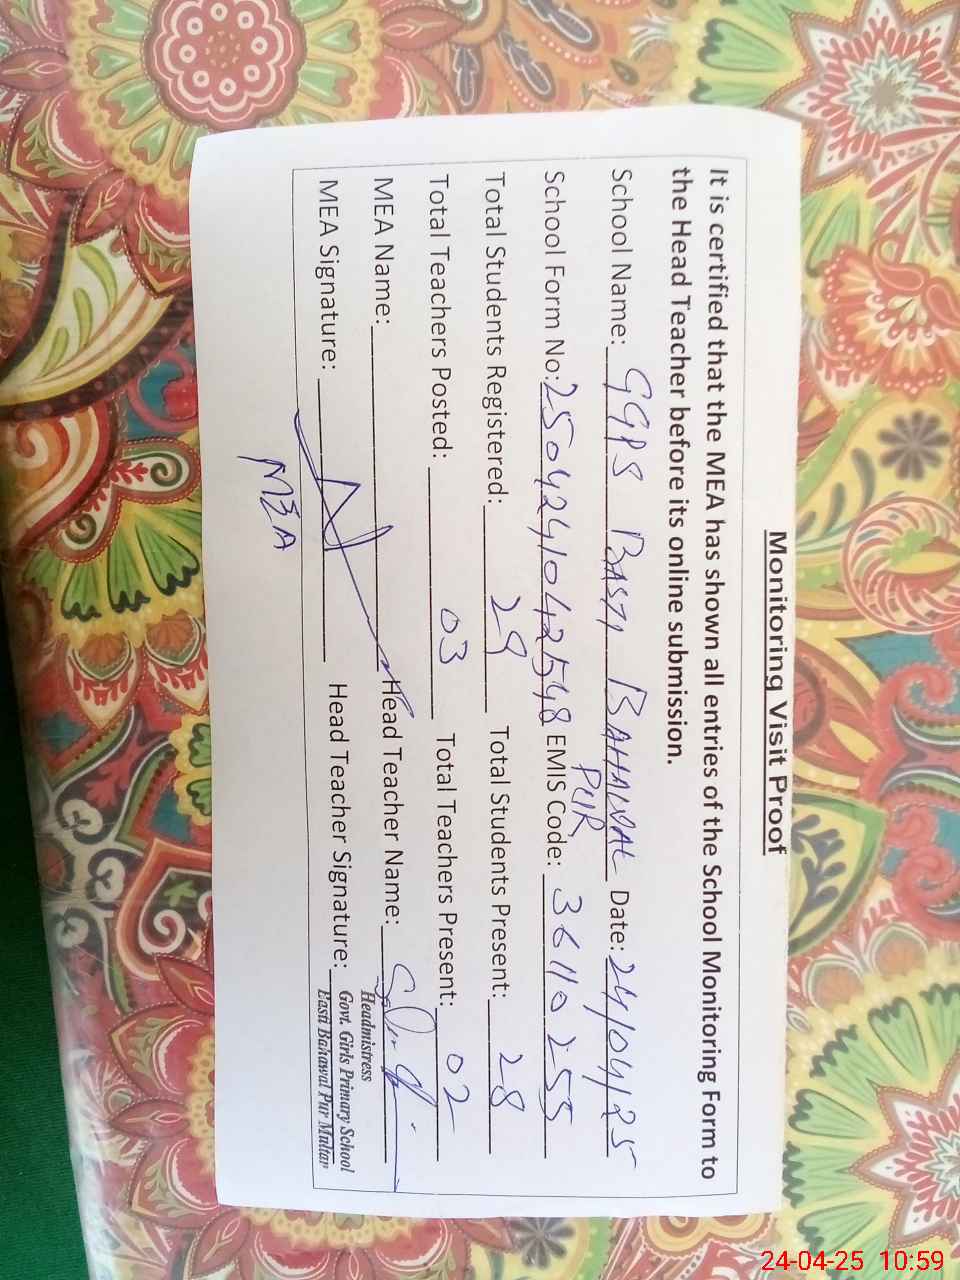 Monitoring Visit Proof
It is certified that the MEA has shown all entries of the School Monitoring Form to
the Head Teacher before its online submission.
School Name: GGPS BASTI BAHAWAL Date: 24/04/25
PUR
School Form No: 2504241042548 EMIS Code: 36110255
Total Students Registered: 29 Total Students Present: 28
Total Teachers Posted: 03 Total Teachers Present: 02
MEA Name: Head Teacher Name:
MEA Signature: Head Teacher Signature:
MEA
Headmistress
Govt. Girls Primary School
Basti Bahawal Pur Multan
24-04-25 10:59